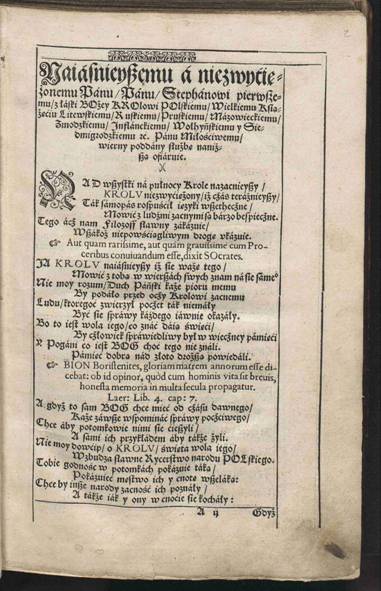 2
Naiaśnieyßemu á niezwyćie-
żonemu Pánu/ Pánu/ Stephánowi pierwsze-
mu/ z łáski BOżey KROLowi POLskiemu/ Wielkiemu Ksią-
żęciu Litewskiemu/ Ruskiemu/ Pruskiemu/ Mázowieckiemu/
Zmodzkiemu/ Inflánckiemu/ Wołhyńskiemu y Sie-
dmigrodzkiemu ꝛc. Pánu Miłośćiwemu/
wierny poddány służbę naniż-
ßą ofiáruie.
NAD wßystki ná pułnocy Krole nazacnieyßy/
KROLV niezwyćiężony/ iż czás teráznieyßy/
Ták sámopás rospuśćił ięzyki wßetheczne/
Mowić z ludźmi zacnymi sá bárzo bespieczne.
Tego ácż nam Filozoff sławny zákázuie/
Wßákoż niepowśćiągliwym drogę vkázuie.
☞ Aut quam rarissime, aut quàm grauissime cum Pro-
ceribus conuiuandum esse, dixit SOcrates.
JA KROLV naiásnieyßy iż się ważę tego/
Mowić z tobą w wierßách swych znam ná się sáme°
Nie moy rozum/ Duch Páński każe pioru memu
By podáło przed oczy Krolowi zacnemu
Ludu/ ktoregoć zwierzył poczet ták niemáły
Być się spráwy káżdego iáwnie okazáły.
Bo to iest wola iego/ co znáć dáią święći/
By człowiek spráwiedliwy był w wieczney pámięći
Y Pogáni co iest BOG choć tego nie ználi.
Pámięć dobrą nád złoto droższą powiedáli.
☞ BION Boristenites, gloriam matrem annorum esse di-
cebat: ob id opinor, quòd cum hominis vita sit breuis,
honesta memoria in multa secula propagatur.
Laer: Lib. 4. cap: 7.
A gdyż to sam BOG chce mieć od czásu dawnego/
Każe záwsze wspomináć spráwy poczćiwego/
Chce áby potomkowie nimi się ćießyli/
A sámi ich przykłádem áby tákże żyli.
Nie moy dowćip/ o KROLV/ święta wola iego/
Wzbudza sławne Rycerstwo narodu POLskiego.
Tobie godność w potomkách pokázuie táką/
Pokázuiec męstwo ich y cnotę wßeláką:
Chce by inße narody zacność ich poznáły/
A tákże iák y ony w cnoćie się kocháły:
A ij
Gdyż